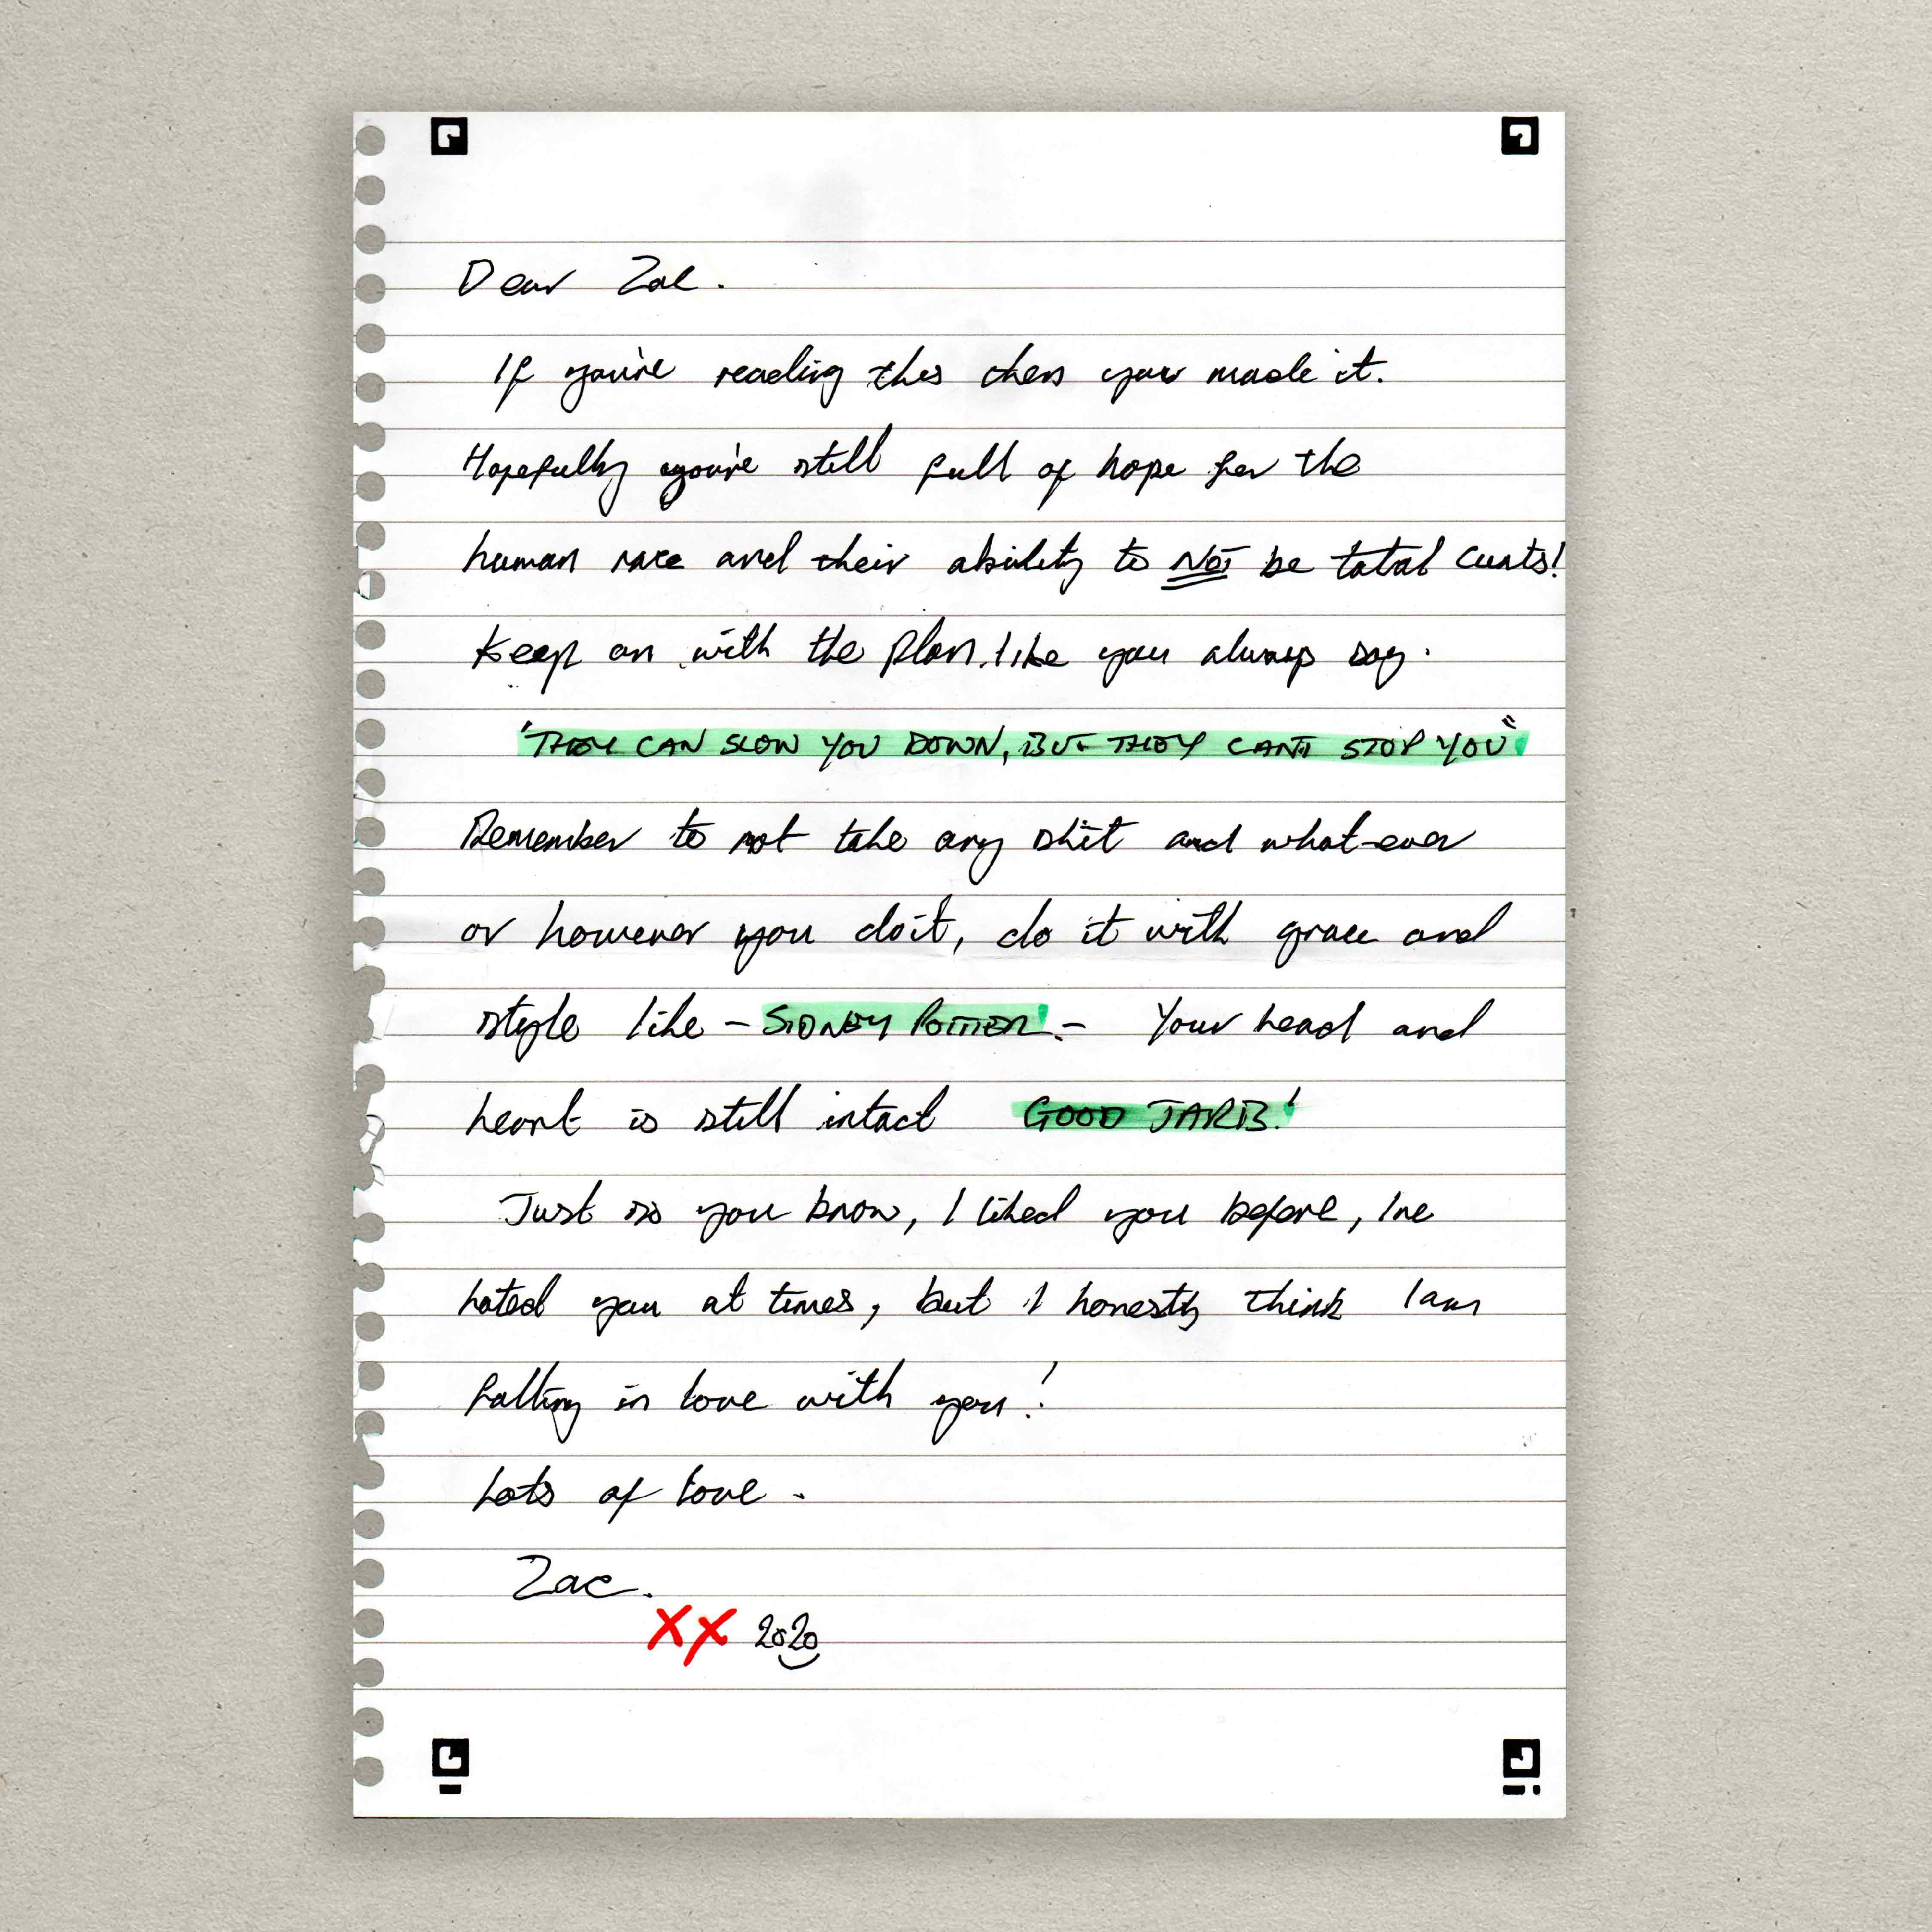 Dear Zac.
If you're reading this then you made it.
Hopefully you're still full of hope for the
human race and their ability to NOT be total cunts!
Keep on with the plan like you always say.
"THEY CAN SLOW YOU DOWN, BUT THEY CANT STOP YOU"
Remember to not take any shit and what-ever
or however you do it, do it with grace and
style like - SIDNEY POITIER! - Your head and
heart is still intact GOOD JARB!
Just so you know, I liked you before, Ive
hated you at times, but I honestly think I am
falling in love with you!
Lots of love.
Zac.
XX 2020